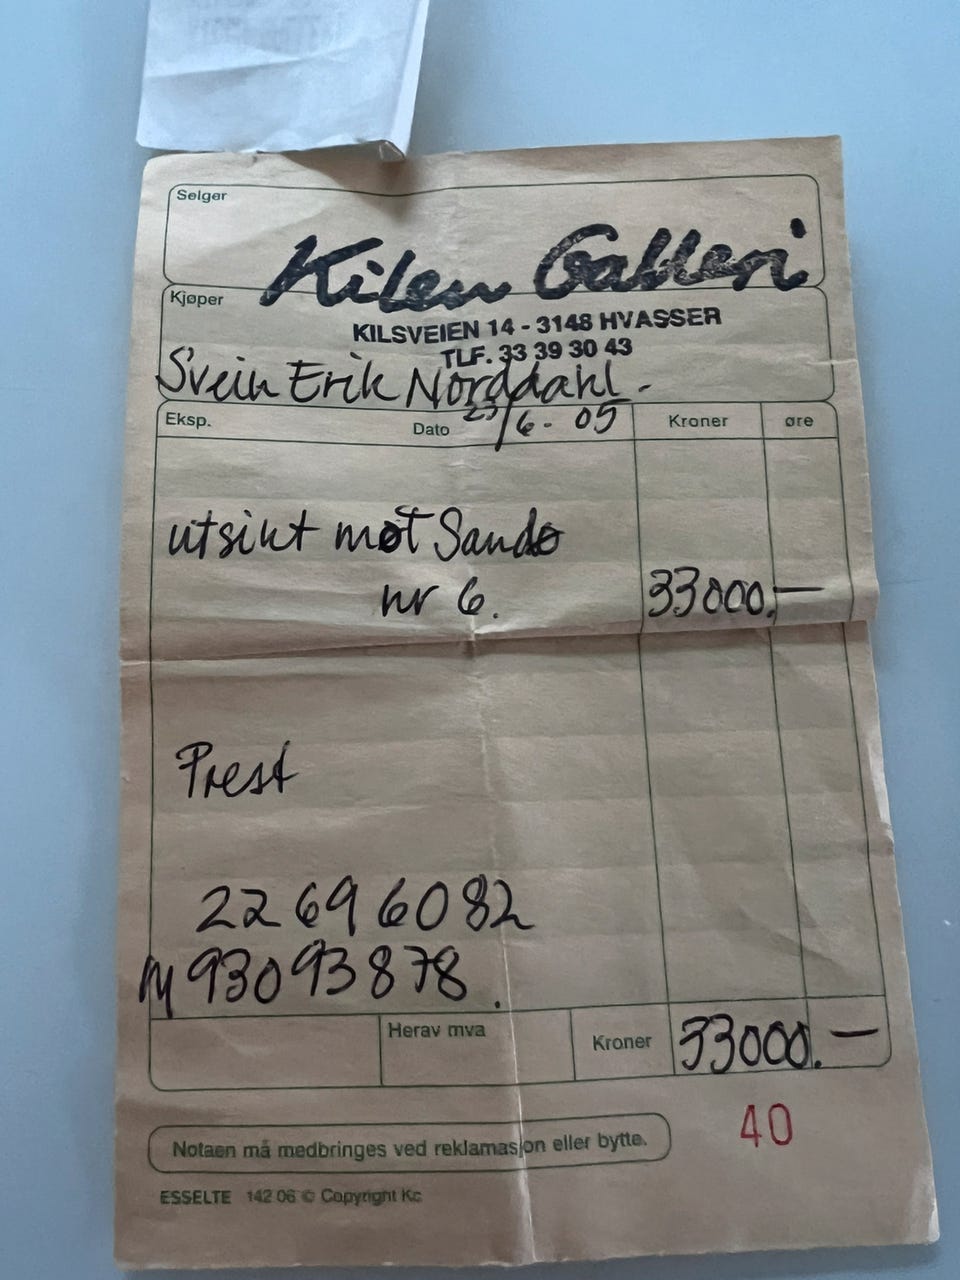 Selger
Kilen Galleri
Kjøper
KILSVEIEN 14 - 3148 HVASSER
TLF. 33 39 30 43
Svein Erik Norddahl.
Eksp. Dato 23/6-05 Kroner øre
utsikt møt Sandø
nr 6. 33000.-
Prest
22 69 60 82
M 93093878.
Herav mva Kroner 33000.-
40
Notaen må medbringes ved reklamasjon eller bytte.
ESSELTE 142 06 © Copyright Kc